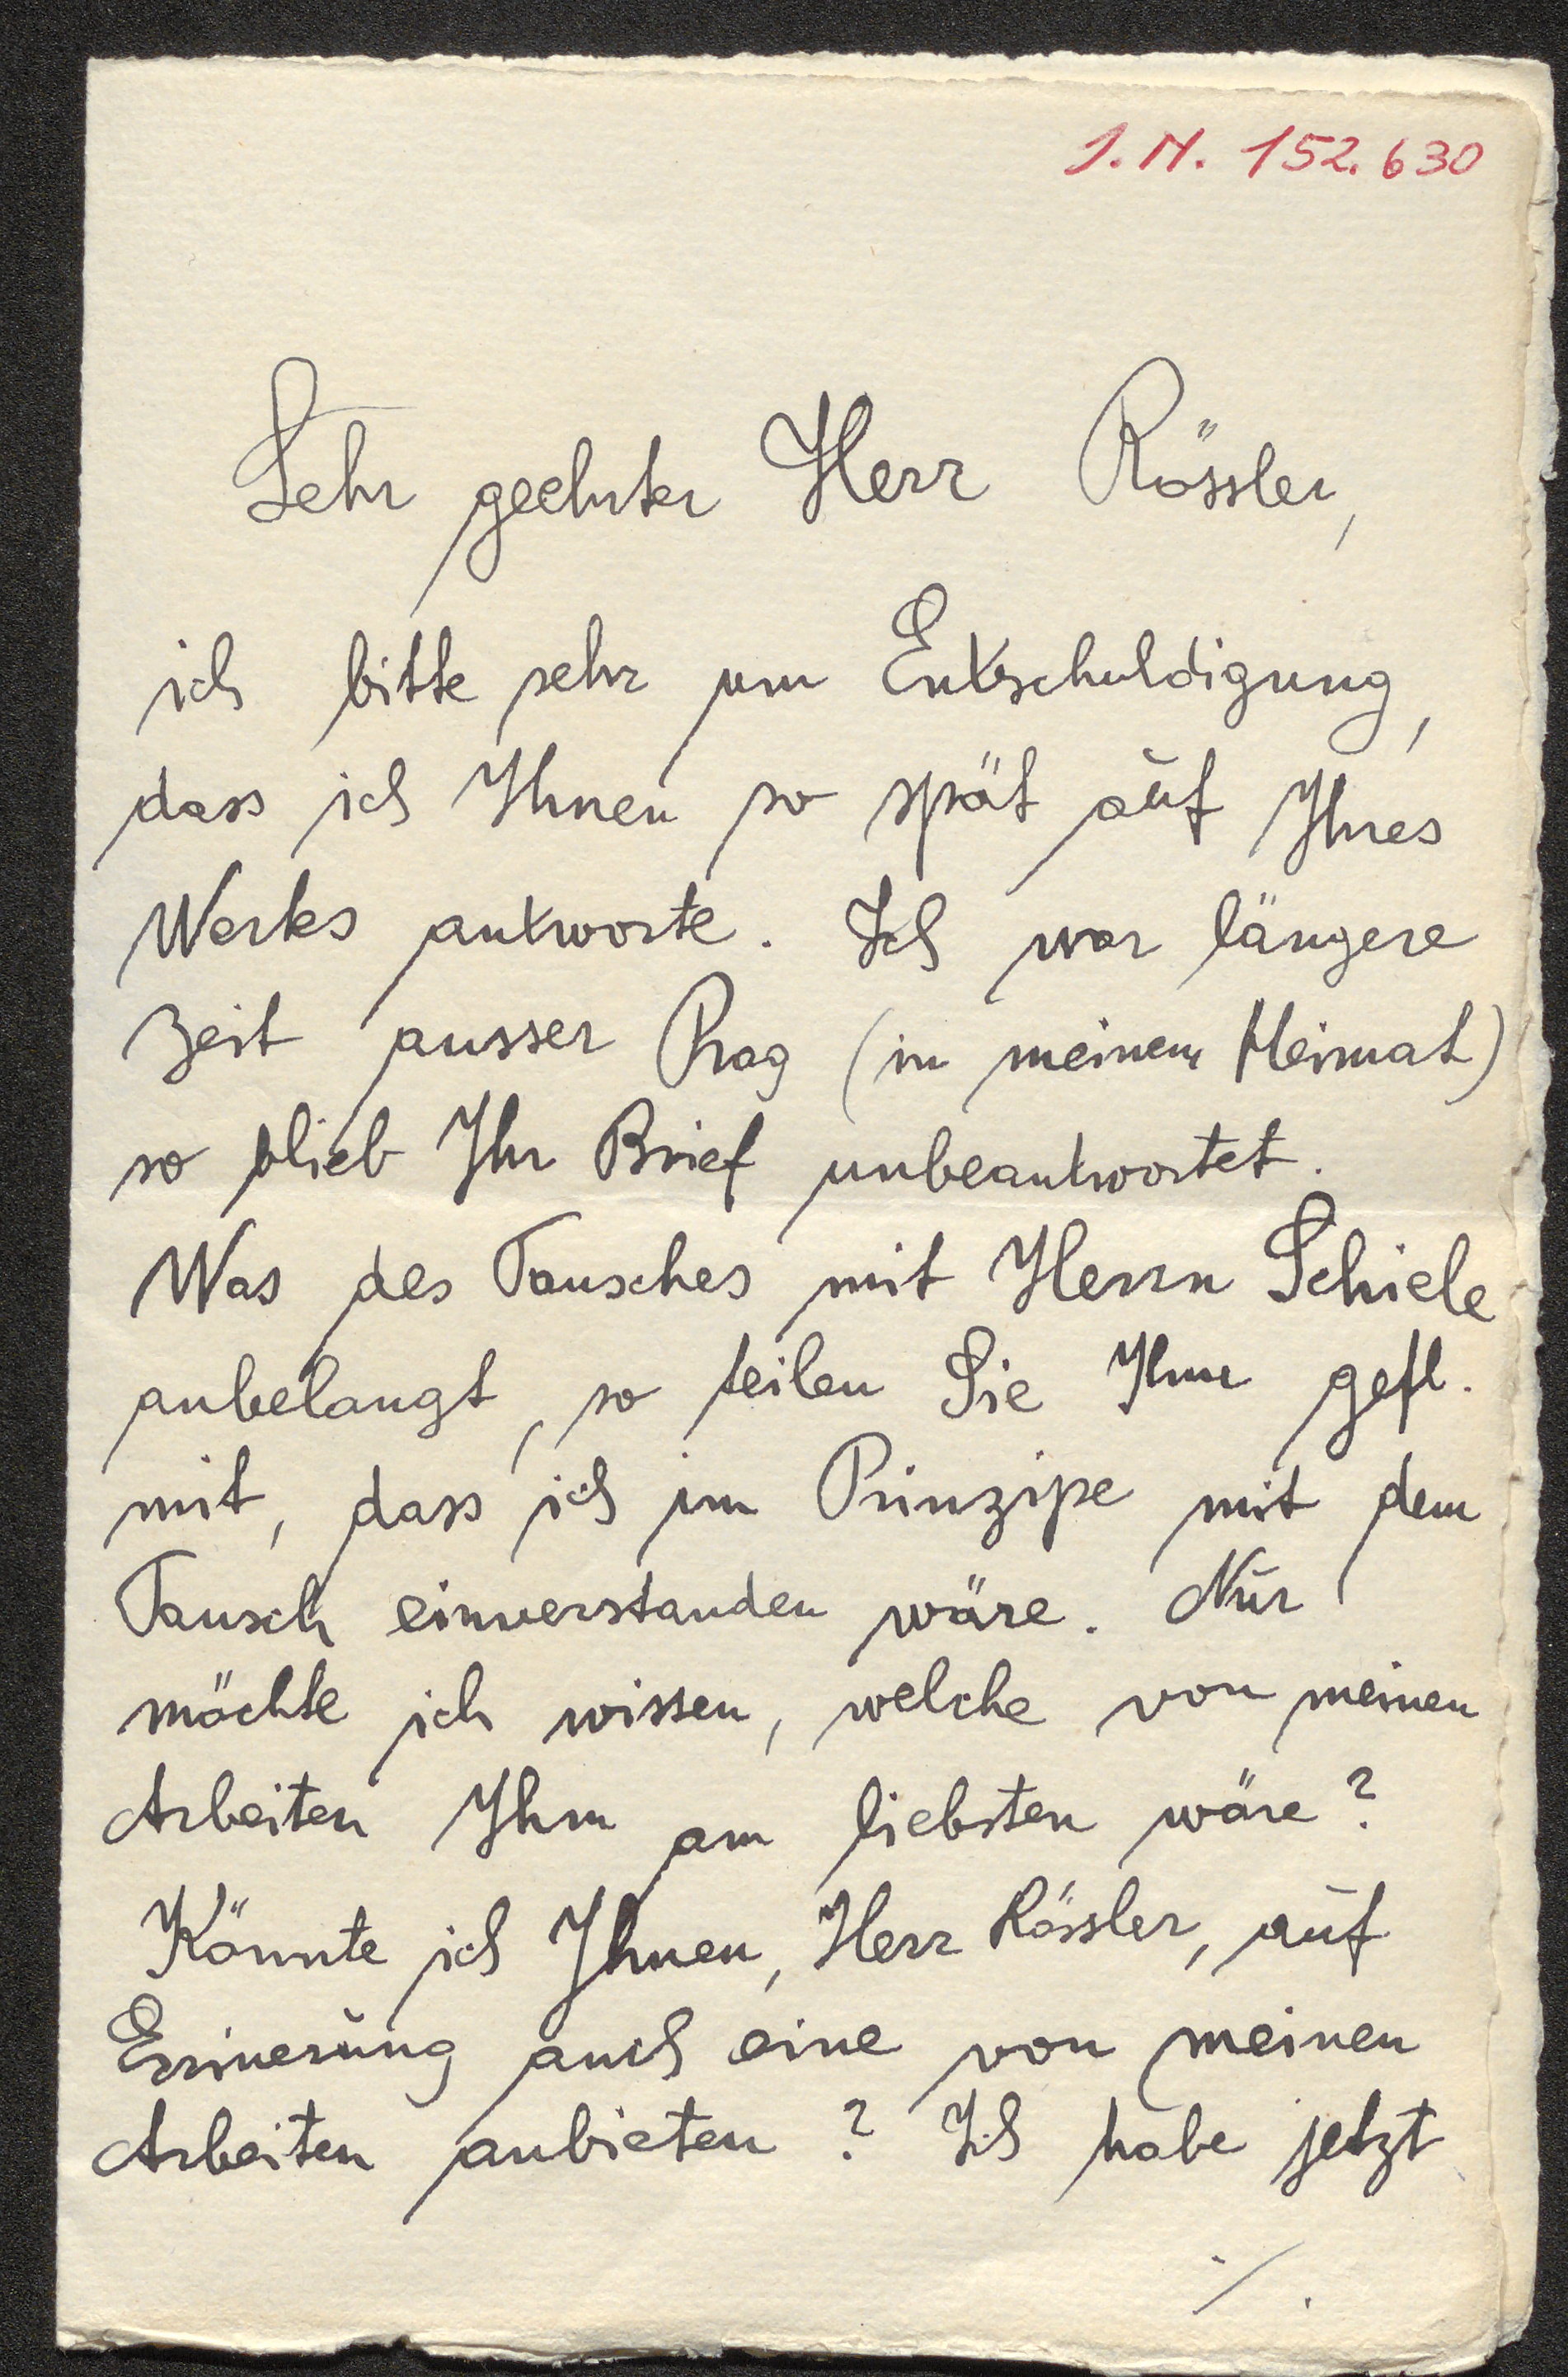 J.N. 152.630
Sehr geehrter Herr Rössler,
ich bitte sehr um Entschuldigung,
dass ich Ihnen so spät auf Ihres
Wertes antworte. Ich war längere
Zeit ausser Prag (in meinem Heimat)
so blieb Ihr Brief unbeantwortet.
Was des Tausches mit Herrn Schiele
anbelangt, so teilen Sie Ihm gefl.
mit, dass ich im Prinzipe mit dem
Tausch einverstanden wäre. Nur
möchte ich wissen, welche von meinen
Arbeiten Ihm am liebsten wäre?
Könnte ich Ihnen, Herr Rössler, auf
Errinerung auch eine von meinen
Arbeiten anbieten? Ich habe jetzt
./.